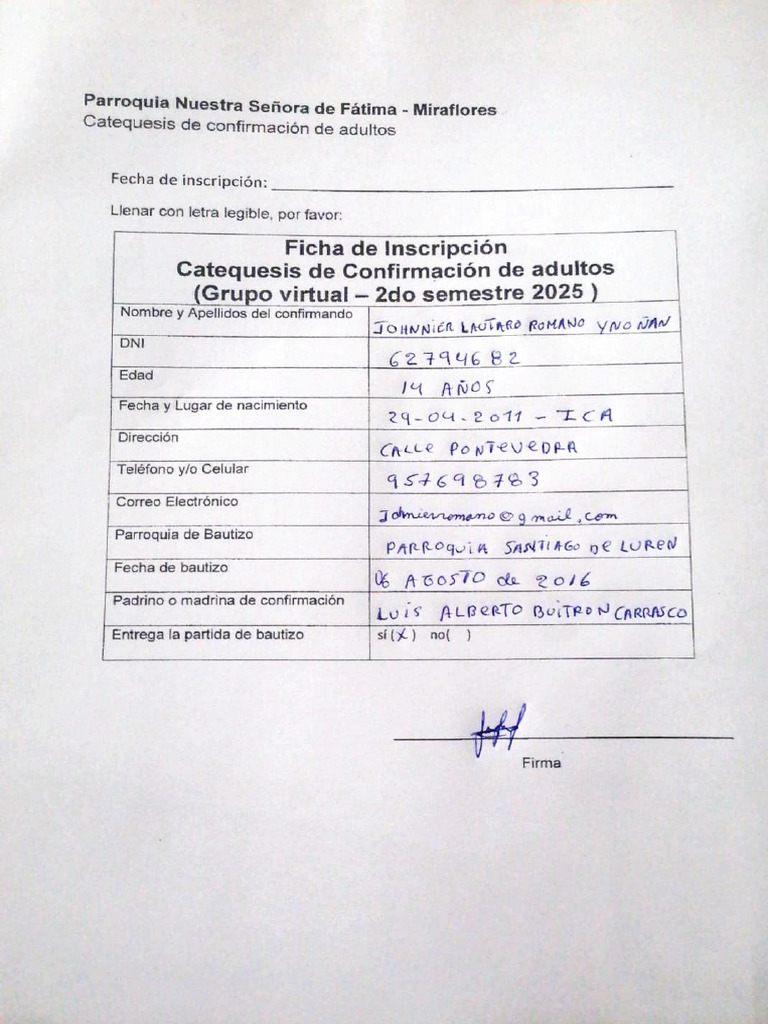 Parroquia Nuestra Señora de Fátima - Miraflores
Catequesis de confirmación de adultos
Fecha de inscripción:
Llenar con letra legible, por favor:
Ficha de Inscripción
Catequesis de Confirmación de adultos
(Grupo virtual – 2do semestre 2025 )
Nombre y Apellidos del confirmando JOHNNIER LAUTARO ROMANO YNOÑAN
DNI 62794682
Edad 14 AÑOS
Fecha y Lugar de nacimiento 29-04-2011 - ICA
Dirección CALLE PONTEVEDRA
Teléfono y/o Celular 957698783
Correo Electrónico @gmail.com
Parroquia de Bautizo PARROQUIA SANTIAGO DE LUREN
Fecha de bautizo 06 AGOSTO de 2016
Padrino o madrina de confirmación LUIS ALBERTO BUITRON CARRASCO
Entrega la partida de bautizo sí (X) no( )
Firma